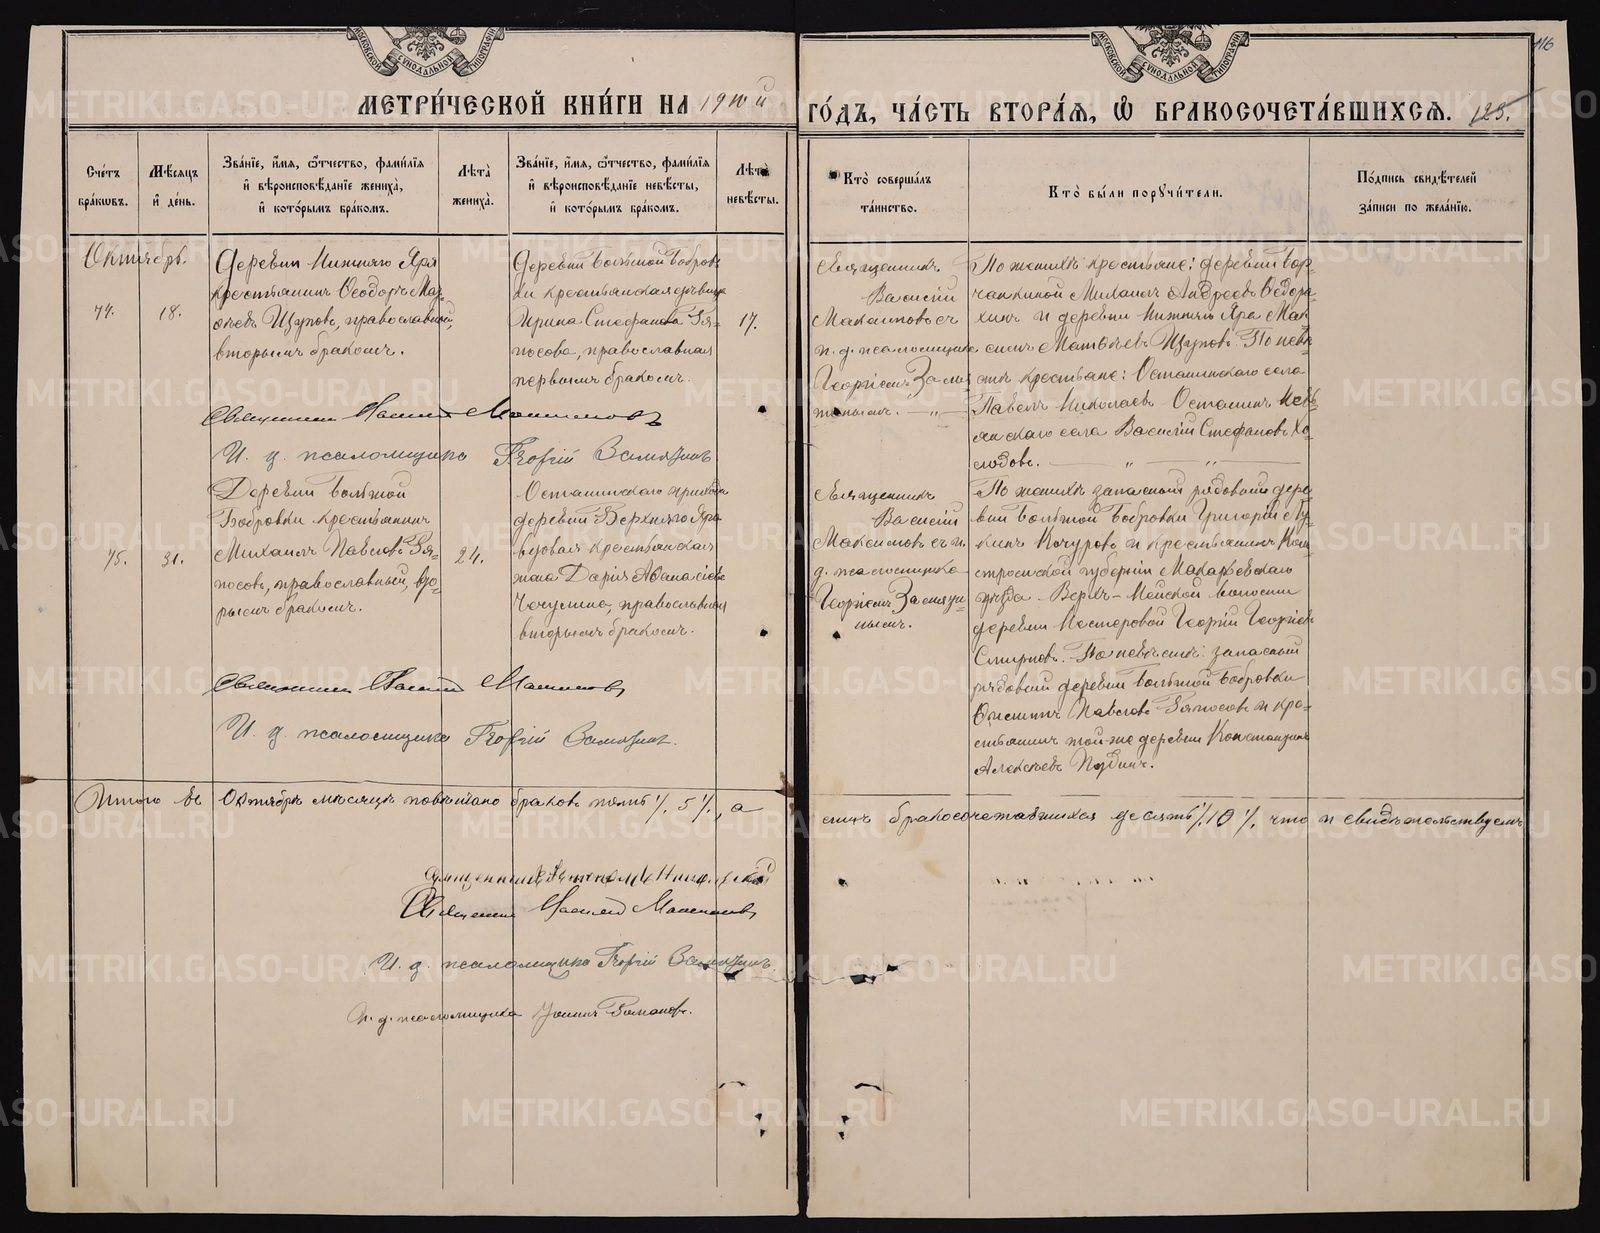 МЕТРИ́ЧЕСКОЙ КНИ́ГИ НА 1910й
ГО́ДЪ, ЧА́СТЬ ВТОРА́Я, Ѡ БРАКОСОЧЕТА́ВШИХСЯ. 125.
116
Сче́тъ бра́ковъ.
Мѣ́сяцъ и́ де́нь.
Зва́нїе, и́мя, ѻ́тчество, фами́лїя и́ вѣроисповѣ́данїе жениха̀, и́ кото́рымъ бра́комъ.
Лѣ́та̀ жениха̀.
Зва́нїе, и́мя, ѻ́тчество, фами́лїя и́ вѣроисповѣ́данїе невѣ́сты, и́ кото́рымъ бра́комъ.
Лѣ́та̀ невѣ́сты.
Кто̀ соверша́лъ та́инство.
Кто̀ бы́ли порꙋчи́тели.
По́дпись свидѣ́телей за́писи по жела́нїю.
Октябрь.
74.
18.
Деревни Нижняго Яра
крестьянинъ Ѳеодоръ Мат-
ѳѣевъ Щуповъ, православный,
вторымъ бракомъ.
Деревни Большой Бобров-
ки крестьянская дѣвица
Ирина Стефанова Зя-
посова, православная
первымъ бракомъ.
17.
Священникъ
Василій
Максимовъ съ
и. д. псаломщика
Георгіемъ Замя
тнымъ. — „ —
По женихѣ крестьяне: деревни
Михаилъ Андреевъ Ѳедора-
хинъ и деревни Нижняго Яра Мак
симъ Матѳѣевъ Щуповъ. По невѣ
стѣ крестьяне: Осташинскаго села
Павелъ Николаевъ Осташинъ и
села Василій Стефановъ Хо-
лодовъ. — „ — „ —
Священникъ Василій Максимовъ
И. д. псаломщика Георгій
75.
31.
Деревни Большой
Бобровки крестьянинъ
Михаилъ Павловъ Зя-
посовъ, православный, вто-
рымъ бракомъ.
24.
Осташинскаго прихода
деревни Верхняго Яра
вдовая крестьянская
жена Дарія Аѳанасіева
Чечулина, православная
вторымъ бракомъ.
Священникъ
Василій
Максимовъ съ и.
д. псаломщика
Георгіемъ
нымъ.
По женихѣ запасный рядовой дере-
вни Большой Бобровки Григорій Лу-
кинъ Кочуровъ и крестьянинъ Кос
тромской губерніи Макарьевскаго
уѣзда волости
деревни Нестеровой Георгій Георгіев
Смирновъ. По невѣстѣ: запасный
рядовой деревни Большой Бобровки
Павловъ Зяпосовъ и кре-
стьянинъ той-же деревни Константинъ
Алексѣевъ Пудинъ.
Священникъ Василій Максимовъ
И. д. псаломщика Георгій
Итого въ Октябрѣ мѣсяцѣ повѣнчано браковъ пять %. 5 %., а
сихъ бракосочетавшихся десять %. 10 %. что и свидѣтельствуемъ
Священникъ
Священникъ Василій Максимовъ
И. д. псаломщика Георгій
И. д. псаломщика Іоаннъ Романовъ.
METRIKI.GASO-URAL.RU